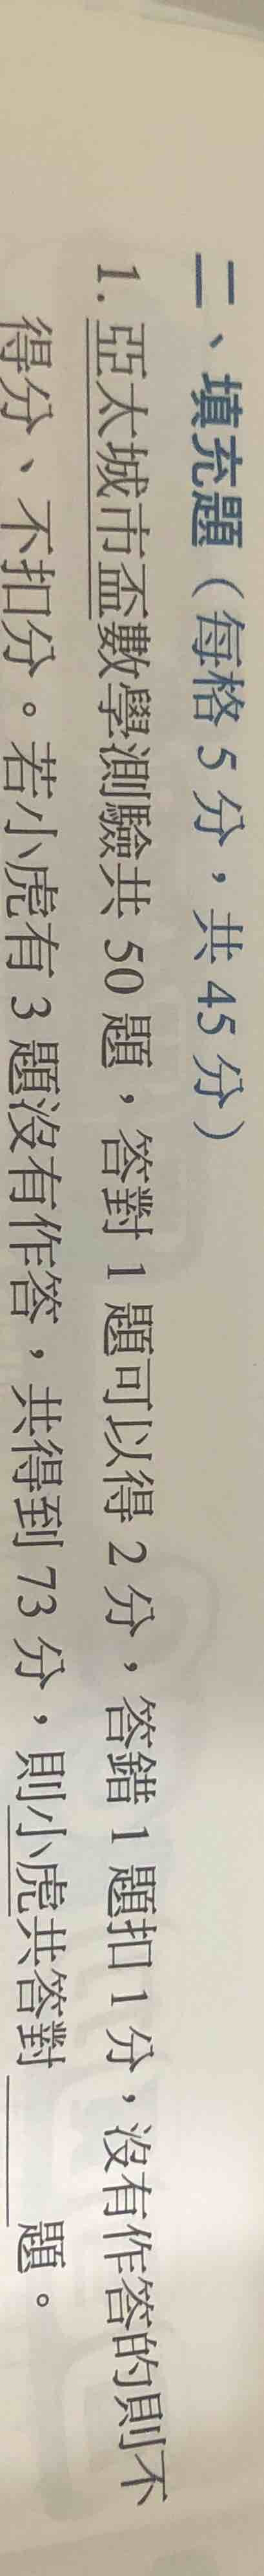 二、填充題（每格 5 分，共 45 分）
1. 亞太城市盃數學測驗共 50 題，答對 1 題可以得 2 分，答錯 1 題扣 1 分，沒有作答的則不
得分、不扣分。若小虎有 3 題沒有作答，共得到 73 分，則小虎共答對____題。